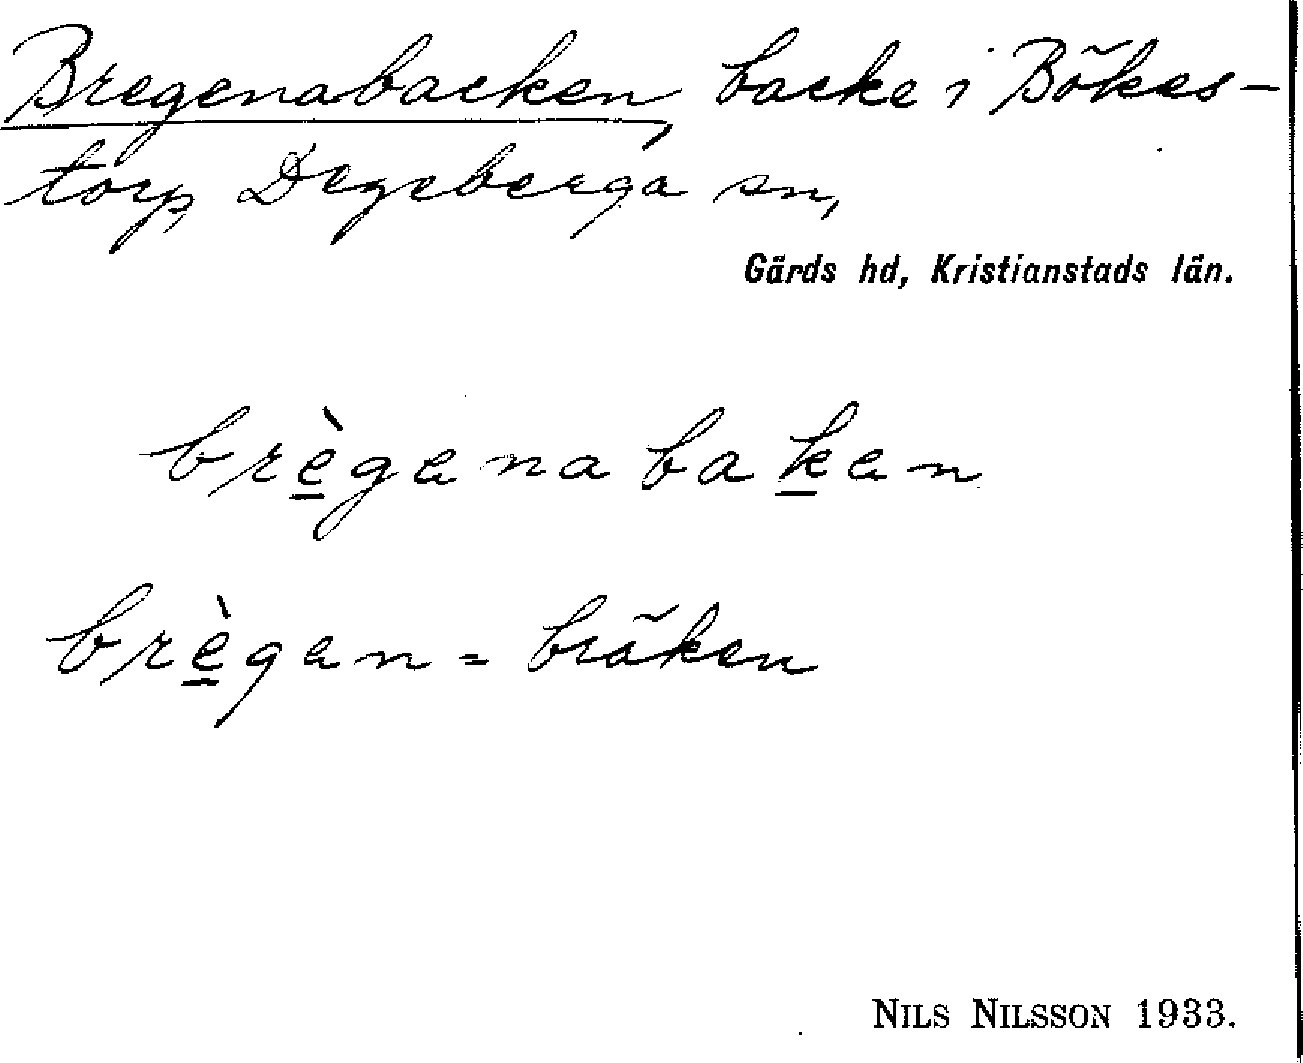 Bregenabacken, backe i Bökes-
torp, Degeberga sn,
Gärds hd, Kristianstads län.
brè̱genabaḵen
brè̱gen = bräken
NILS NILSSON 1933.